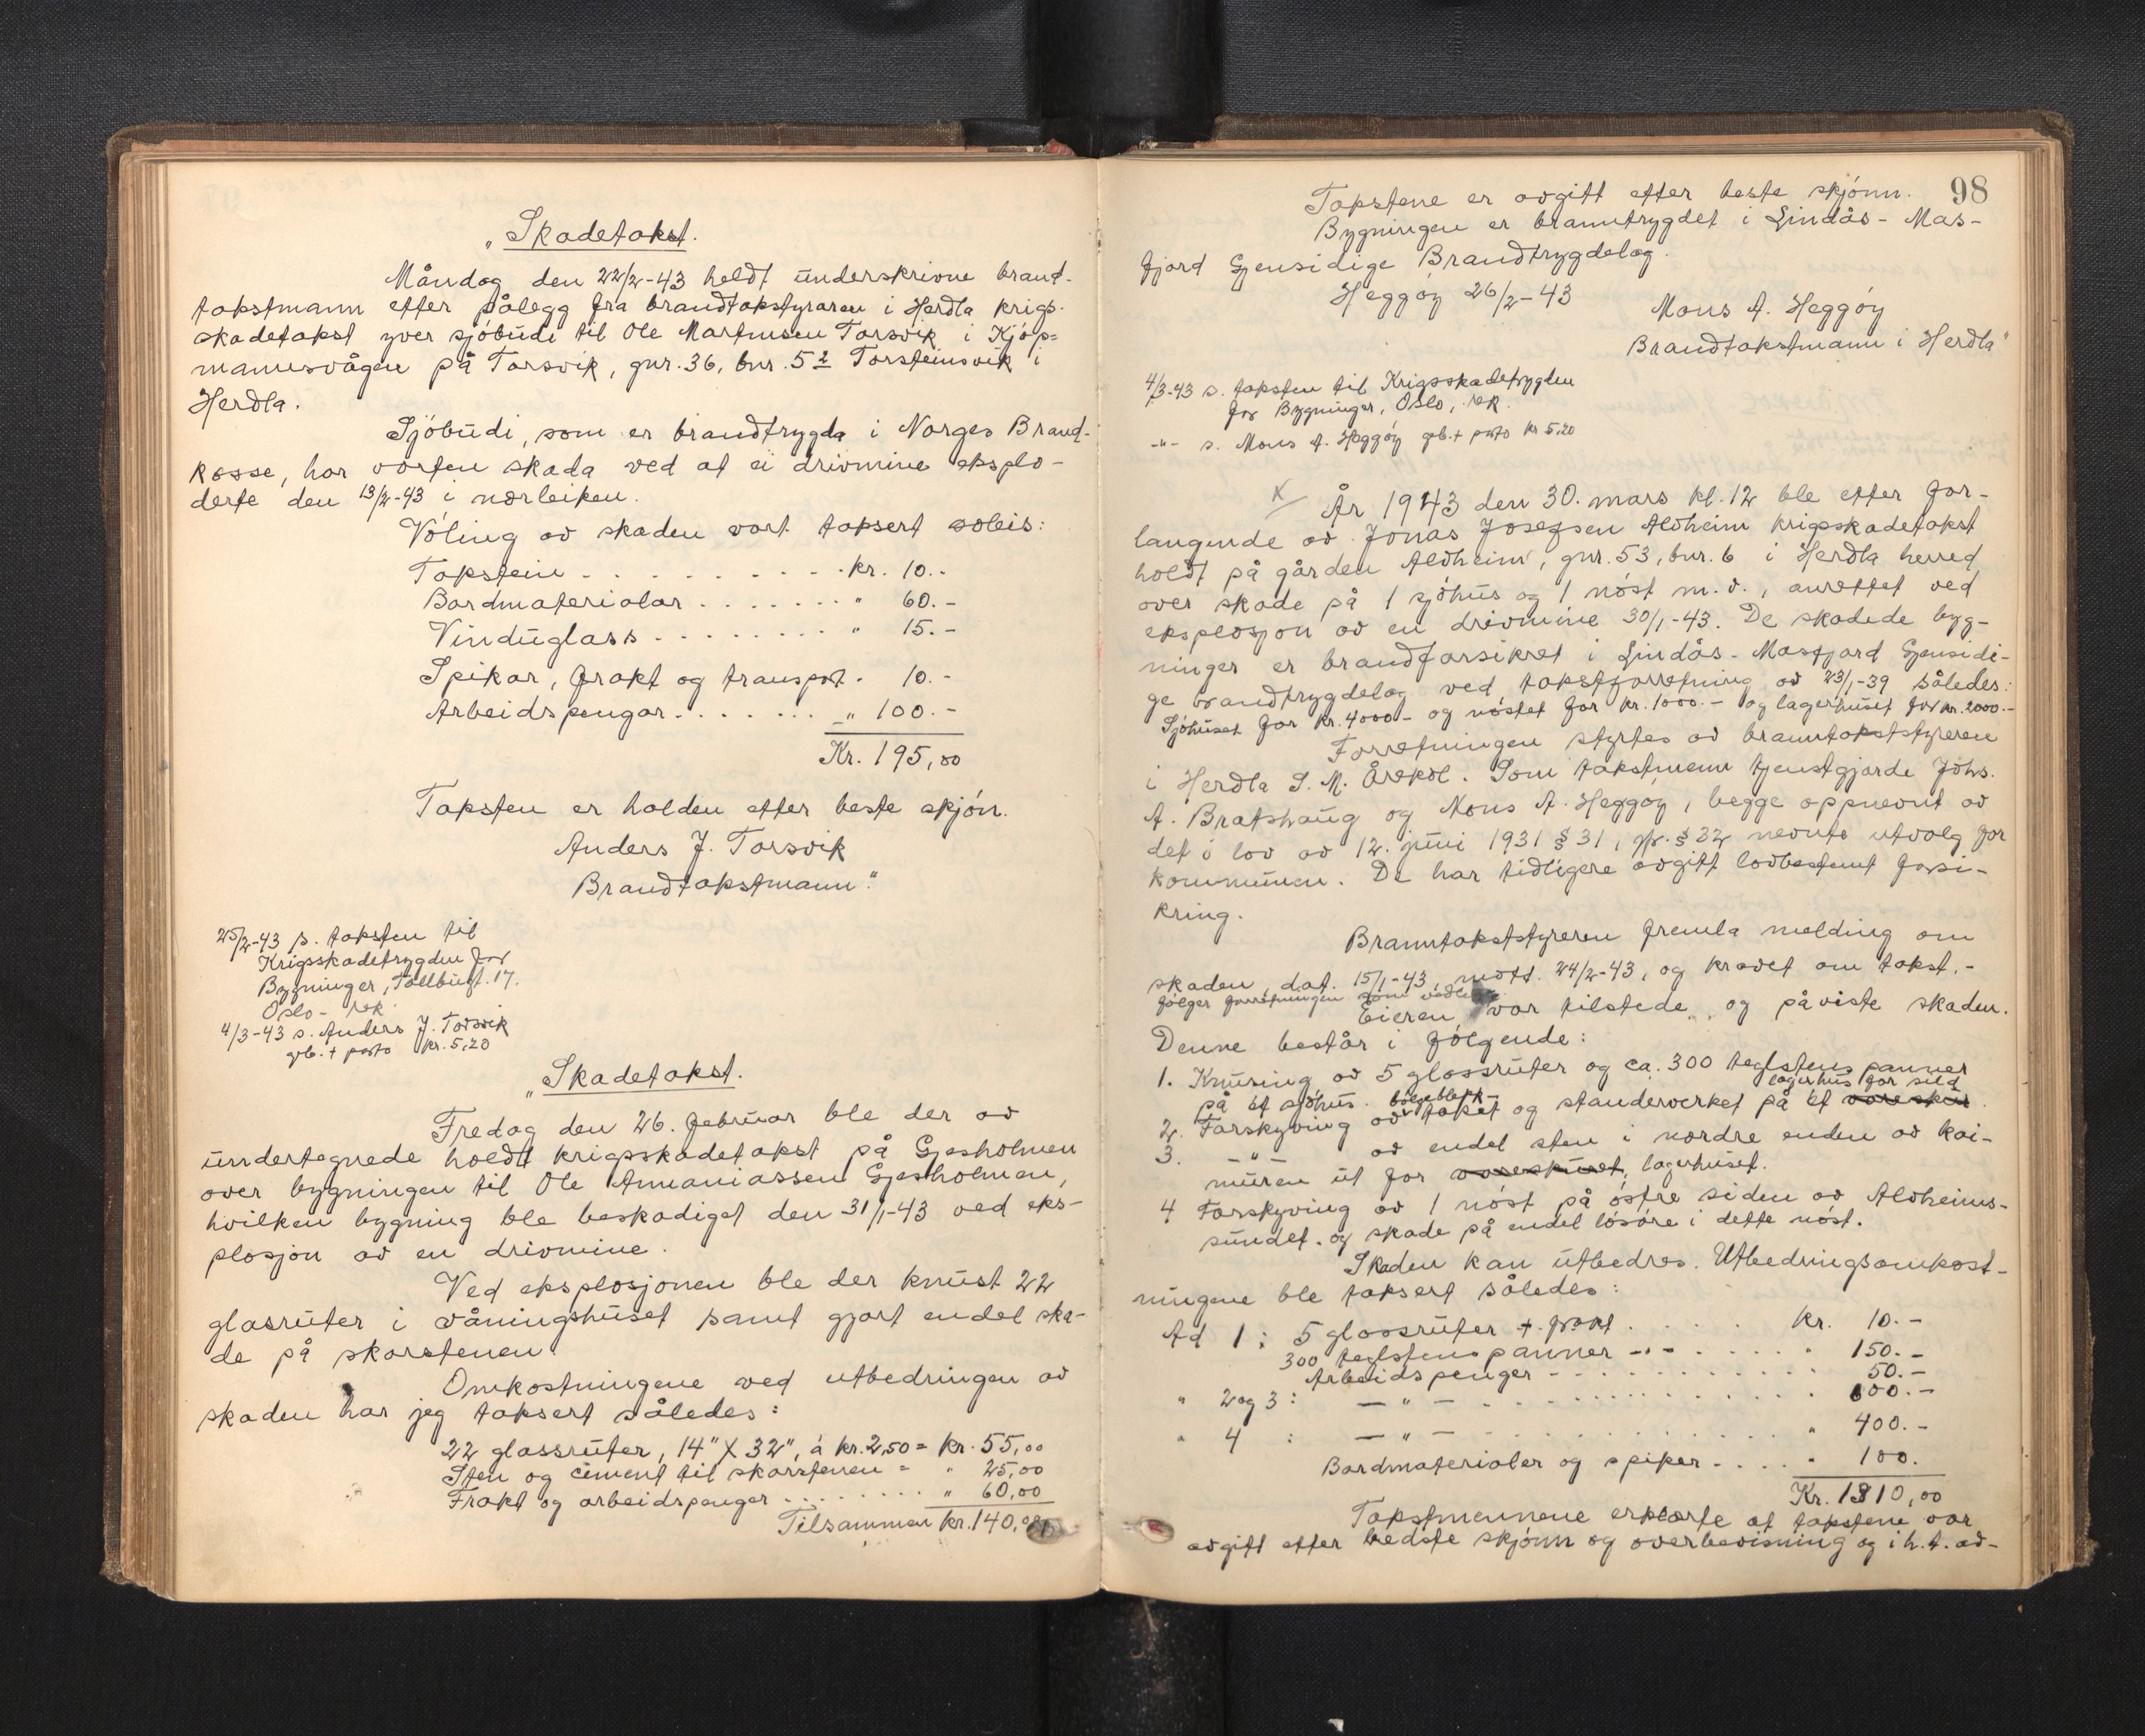 „Skadetakst.
Måndag den 22/2-43 heldt underskrivne brand-
takstmann efter pålegg fra brandtakstyraren i Herdla krigs-
skadetakst yver sjøbudi til Ole Martinsen Torsvik i Kjøp-
mannsvågen på Torsvik, gnr. 36, bnr. 52 Torsteinsvik i
Herdla.
Sjøbudi, som er brandtrygda i Norges Brand-
kasse, har vorten skada ved at ei drivmine eksplo-
derte den 13/2-43 i nærleiken.
Vøling av skaden vart taksert soleis:
Takstein - - - - - kr. 10.-
Bordmaterialar . . . . . . . " 60.-
Vinduglass . . . . . . . . " 15.-
Spikar, frakt og transport . 10.-
Arbeidspengar. . . . . . . " 100.-
Kr. 195,00
Taksten er halden efter beste skjøn.
Anders J. Torsvik
Brandtakstmann."
25/2-43 s. taksten til
Krigsskadetrygden for
Bygninger, Tollbugt. 17.
Oslo - rek.
4/3-43 s. Anders J. Torsvik
gb. + porto kr. 5,20
„Skadetakst.
Fredag den 26. februar ble der av
undertegnede holdt krigsskadetakst på Gjesholmen
over bygningen til Ole Annaniassen Gjesholmen,
hvilken bygning ble beskadiget den 31/1-43 ved eks-
plosjon av en drivmine.
Ved eksplosjonen ble der knust 22
glasruter i våningshuset samt gjort endel ska-
de på skorstenen.
Omkostningene ved utbedringen av
skaden har jeg taksert således:
22 glassruter, 14" X 32", á kr. 2,50 = kr. 55,00
Sten og cement til skorstenen = " 25,00
Frakt og arbeidspenger . . . . . . . . " 60,00
Tilsammen kr. 140,00
98
Takstene er avgitt efter beste skjønn.
Bygningen er branntrygdet i Lindås - Mas-
fjord Gjensidige Brandtrygdelag.
Heggøy 26/2-43
Mons A. Heggøy
Brandtakstmann i Herdla"
4/3-43 s. taksten til Krigsskadetrygden
for Bygninger, Oslo, rek.
-"- s. Mons A. Heggøy gb. + porto kr 5,20
X År 1943 den 30. mars kl. 12 ble efter for-
langende av Jonas Josefsen Alvheim krigsskadetakst
holdt på gården Alvheim, gnr. 53, bnr. 6 i Herdla herred
over skade på 1 sjøhus og 1 nøst m.v., anrettet ved
eksplosjon av en drivmine 30/1-43. De skadede byg-
ninger er brandforsikret i Lindås - Masfjord Gjensidi-
ge brandtrygdelag ved takstforretning av 23/1-39 således:
Sjøhuset for kr. 4000.- og nøstet for kr. 1000.- og lagerhuset for kr. 2000.-
Forretningen styrtes av branntakststyreren
i Herdla S. M. Årskol. Som takstmenn tjenstgjorde Johs.
A. Bratshaug og Mons A. Heggøy, begge oppnevnt av
det i lov av 12. juni 1931 § 31, jfr. § 32 nevnte utvalg for
kommunen. De har tidligere avgitt lovbestemt forsi-
kring.
Branntakststyreren fremla melding om
skaden, dat. 15/1-43, mott. 24/2-43, og kravet om takst.-
følger forretningen som vedlegg
Eieren var tilstede og påviste skaden.
Denne består i følgende:
1. Knusing av 5 glassruter og ca. 300 teglstens panner
på et sjøhus. bølgeblekk- lagerhus for sild
2. Forskyving av taket og standerverket på et vareskur.
3. -"- av endel sten i nordre enden av kai-
muren ut for vareskuret, lagerhuset.
4 Forskyving av 1 nøst på østre siden av Alvheims-
sundet. og skade på endel løsøre i dette nøst.
Skaden kan utbedres. Utbedringsomkost-
ningene ble taksert således:
Ad 1: 5 glassruter + frakt . . . . . kr. 10.-
300 teglstens panner -.- . . . . " 150.-
Arbeidspenger - . . . . . . . . 50.-
" 2 og 3: -"- . . . . . . . . 600.-
" 4 : -"- . . . . . . . . " 400.-
Bordmaterialer og spiker . . . . " 100.
Kr. 1310,00
Takstmennene erklærte at takstene var
avgitt efter bedste skjønn og overbevisning og i h. t. av-